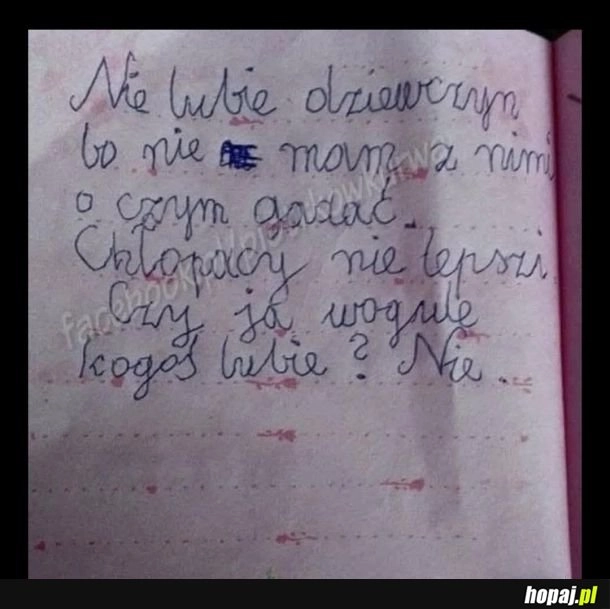 Nie lubie dziewczyn
bo nie mam z nimi
o czym gadać.
Chłopacy nie lepszi.
Czy ja wogule
kogoś lubie? Nie.
hopaj.pl